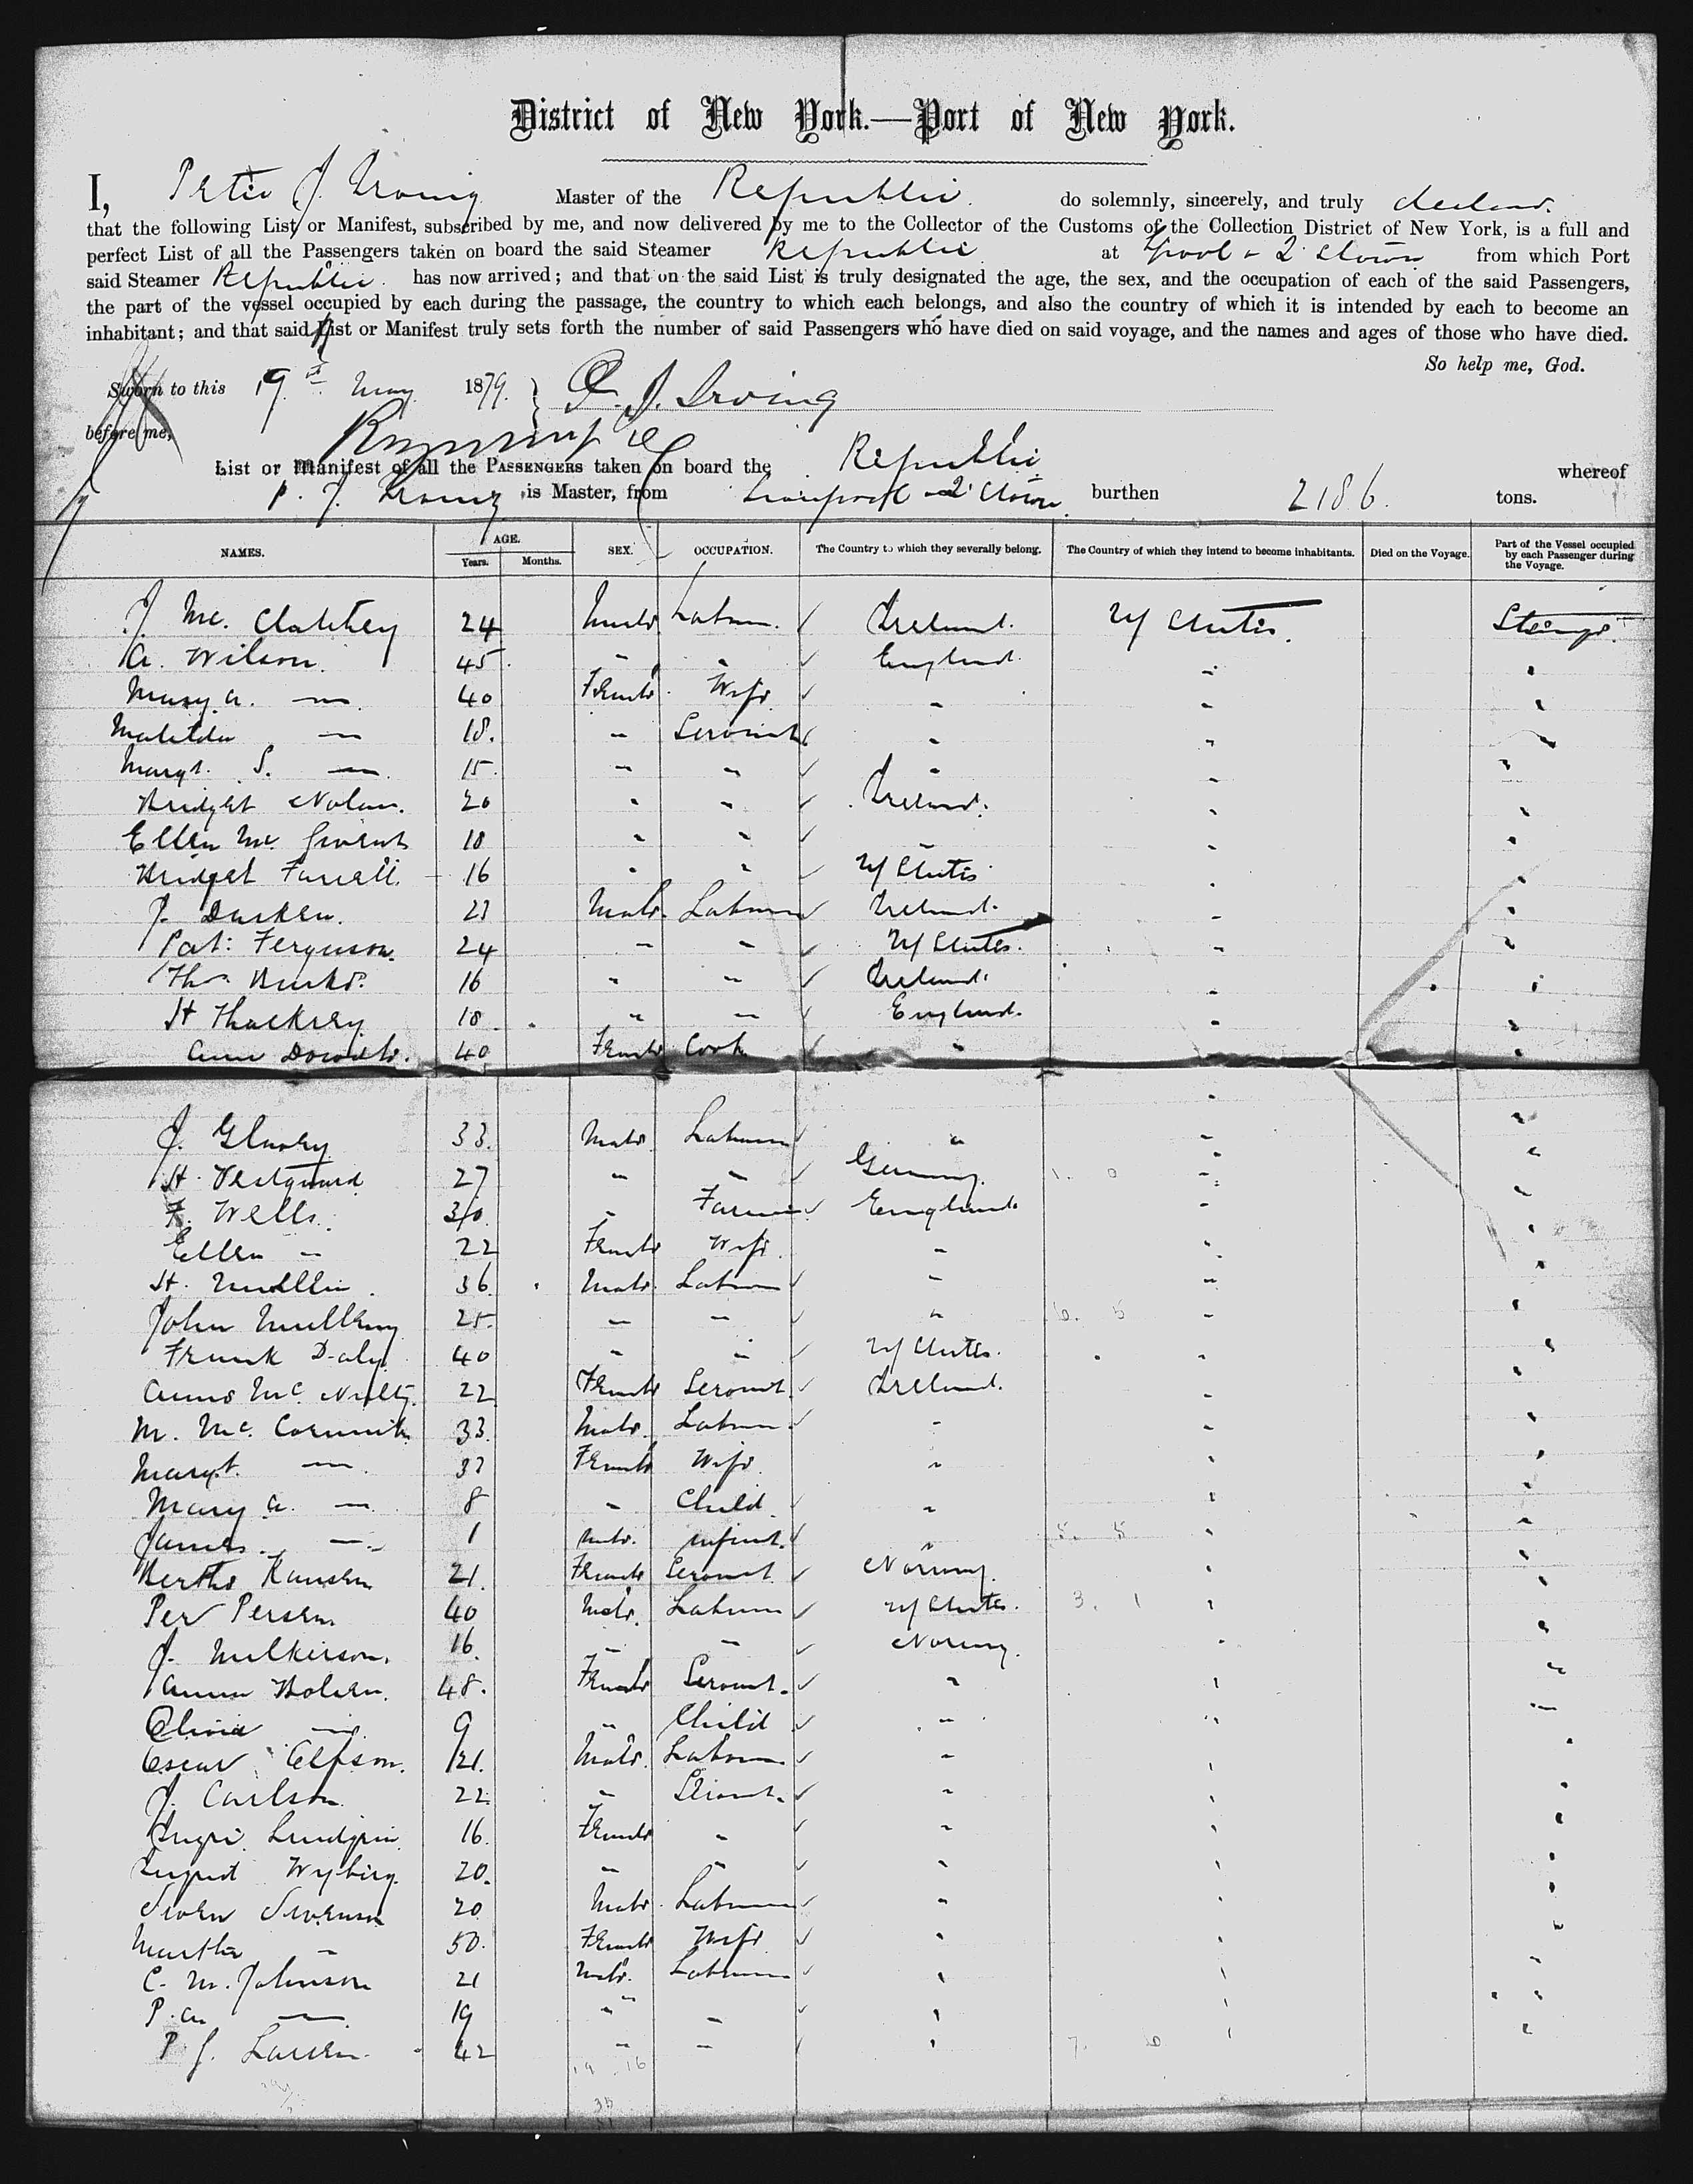 District of New York.—Port of New York.
I, Peter J. Irving Master of the Republic. do solemnly, sincerely, and truly declare
that the following List or Manifest, subscribed by me, and now delivered by me to the Collector of the Customs of the Collection District of New York, is a full and
perfect List of all the Passengers taken on board the said Steamer Republic at L'pool & Q'Town from which Port
said Steamer Republic. has now arrived; and that on the said List is truly designated the age, the sex, and the occupation of each of the said Passengers,
the part of the vessel occupied by each during the passage, the country to which each belongs, and also the country of which it is intended by each to become an
inhabitant; and that said List or Manifest truly sets forth the number of said Passengers who have died on said voyage, and the names and ages of those who have died.
So help me, God.
Sworn to this 19th May 1879. } P. J. Irving
before me,
List or Manifest of all the Passengers taken on board the Republic whereof
P. J. Irving is Master, from Liverpool & Q'Town burthen 2186. tons.
NAMES. AGE. Years. Months. SEX. OCCUPATION. The Country to which they severally belong. The Country of which they intend to become inhabitants. Died on the Voyage. Part of the Vessel occupied by each Passenger during the Voyage.
J. Mc. Clatchey 24 Male Labourer. Ireland. U/ States. Steerage.
A. Wilson. 45 " " England. " "
Mary A. — 40 Female Wife " " "
Matilda — 18. " Servant " " "
Margt. S. — 15 " " " " "
Bridget Nolan. 20 " " Ireland. " "
Ellen Mc. 18 " " " " "
Bridget Farrell. 16 " " U/ States " "
J. Durken. 23 Male Labourer Ireland. " "
Pat: Ferguson. 24 " " U/ States. " "
Thos. Burke. 16 " " Ireland. " "
H Thackrey 18 " " England. " "
Ann 40 Female Cook " " "
J. 33. Male Labourer " " "
H. 27 " " Germany. " "
F. Wells. 30 " Farmer England " "
Ellen — 22 Female Wife " " "
H. 36 Male Labourer " " "
John 25 " " " " "
Frank Daly. 40 " " U/ States. " "
Annie Mc. Nulty. 22 Female Servant Ireland. " "
M. Mc. Cormick 33 Male. Labourer " " "
Margt. — 33 Female Wife " " "
Mary A. — 8 " Child " " "
James. — 1 Male. Infant. " " "
Berthe Hansen 21. Female Servant Norway. " "
Per Persen 40 Male. Labourer U/ States. " "
J. 16. " " Norway. " "
Anna Holsen. 48. Female Servant. " " "
Olivia — 9 " Child " " "
Oscar 21. Male. Labourer " " "
J. Carlson 22. " Servant. " " "
Ingri Lundgrin 16. Female " " " "
Ingrid Wyberg. 20. " " " " "
Swen Swenson 20 Male Labourer " " "
Martha — 50. Female Wife " " "
C. M. Johnson 21 Male. Labourer " " "
P. A. — 19 " " " " "
P. J. Larsen 42 " " " " "